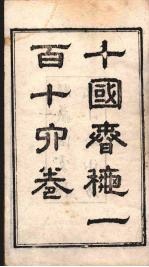 十國春秋一
百十六卷